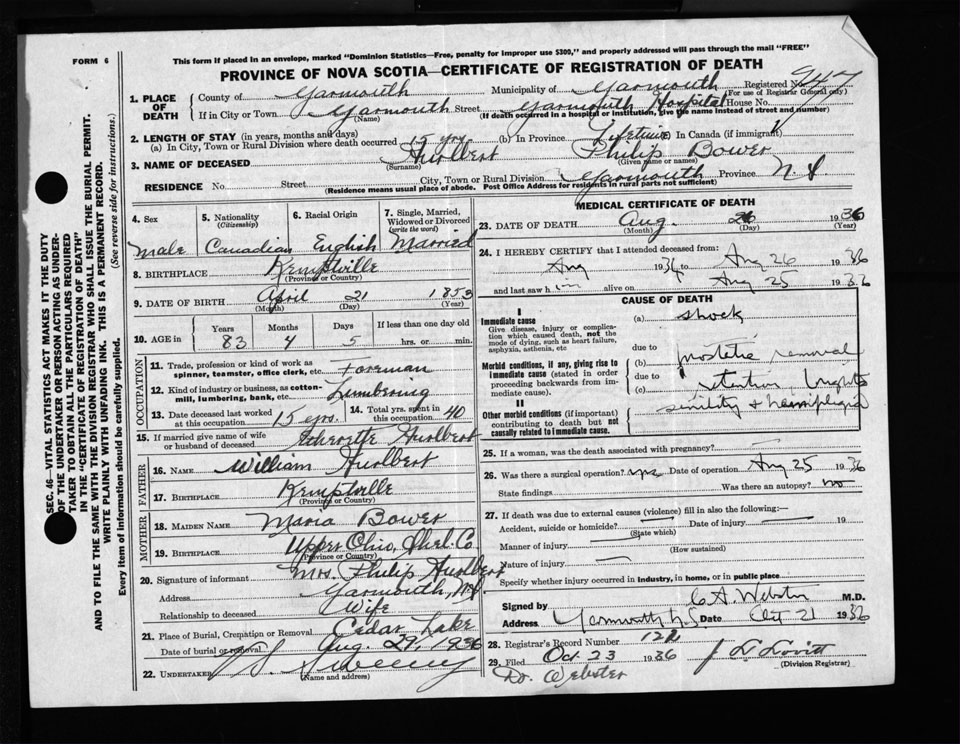 This form if placed in an envelope, marked "Dominion Statistics—Free, penalty for improper use $300," and properly addressed will pass through the mail "FREE"
FORM 6
PROVINCE OF NOVA SCOTIA—CERTIFICATE OF REGISTRATION OF DEATH
SEC. 46—VITAL STATISTICS ACT MAKES IT THE DUTY
OF THE UNDERTAKER OR PERSON ACTING AS UNDER-
TAKER TO OBTAIN ALL THE PARTICULARS REQUIRED
IN THE "CERTIFICATE OF REGISTRATION OF DEATH"
AND TO FILE THE SAME WITH THE DIVISION REGISTRAR WHO SHALL ISSUE THE BURIAL PERMIT.
WRITE PLAINLY WITH UNFADING INK. THIS IS A PERMANENT RECORD.
Every item of information should be carefully supplied. (See reverse side for instructions.)
1. PLACE OF DEATH
County of Yarmouth Municipality of Yarmouth Registered No. 947
(For use of Registrar General only)
If in City or Town Yarmouth Street Yarmouth Hospital House No.
(Name) (If death occurred in a hospital or institution, give the name instead of street and number)
2. LENGTH OF STAY (in years, months and days)
(a) In City, Town or Rural Division where death occurred 15 yrs (b) In Province Lifetime In Canada (if immigrant)
3. NAME OF DECEASED Hurlbert Philip Bower
(Surname) (Given name or names)
RESIDENCE No. Street City, Town or Rural Division Yarmouth Province N.S.
(Residence means usual place of abode. Post Office Address for residents in rural parts not sufficient)
4. Sex Male
5. Nationality (Citizenship) Canadian
6. Racial Origin English
7. Single, Married, Widowed or Divorced (write the word) Married
8. BIRTHPLACE Kemptville
(Province or Country)
9. DATE OF BIRTH April 21 1853
(Month) (Day) (Year)
10. AGE in Years Months Days If less than one day old
83 4 5 hrs. or min.
OCCUPATION
11. Trade, profession or kind of work as spinner, teamster, office clerk, etc. Foreman
12. Kind of industry or business, as cotton-mill, lumbering, bank, etc. Lumbering
13. Date deceased last worked at this occupation 15 yrs.
14. Total yrs. spent in this occupation 40
15. If married give name of wife or husband of deceased Hurlbert
FATHER
16. NAME William Hurlbert
17. BIRTHPLACE Kemptville
(Province or Country)
MOTHER
18. MAIDEN NAME Maria Bower
19. BIRTHPLACE Upper Ohio, Shel. Co
(Province or Country)
20. Signature of informant Mrs. Philip Hurlbert
Address Yarmouth, N.S.
Relationship to deceased Wife
21. Place of Burial, Cremation or Removal Cedar Lake
Date of burial or removal Aug. 29, 1936
22. UNDERTAKER Sweeny
(Name and address)
MEDICAL CERTIFICATE OF DEATH
23. DATE OF DEATH Aug. 26 1936
(Month) (Day) (Year)
24. I HEREBY CERTIFY that I attended deceased from:
Aug 1934 to Aug 26 1936
and last saw him alive on Aug 25 1936
CAUSE OF DEATH
I
Immediate cause
Give disease, injury or complication which caused death, not the mode of dying, such as heart failure, asphyxia, asthenia, etc
(a) shock
due to
Morbid conditions, if any, giving rise to immediate cause (stated in order proceeding backwards from immediate cause).
(b) prostatic removal
due to
(c) retention
II
Other morbid conditions (if important) contributing to death but not causally related to immediate cause.
senility & hemiplegia
25. If a woman, was the death associated with pregnancy?
26. Was there a surgical operation? yes Date of operation Aug 25 1936
State findings Was there an autopsy? no
27. If death was due to external causes (violence) fill in also the following:
Accident, suicide or homicide? Date of injury 19
(State which)
Manner of injury
(How sustained)
Nature of injury
Specify whether injury occurred in industry, in home, or in public place
Signed by C A. Webster M.D.
Address Yarmouth N S Date Oct 21 1936
28. Registrar's Record Number 122
29. Filed Oct 23 1936 J L Lovitt
(Division Registrar)
Dr. Webster